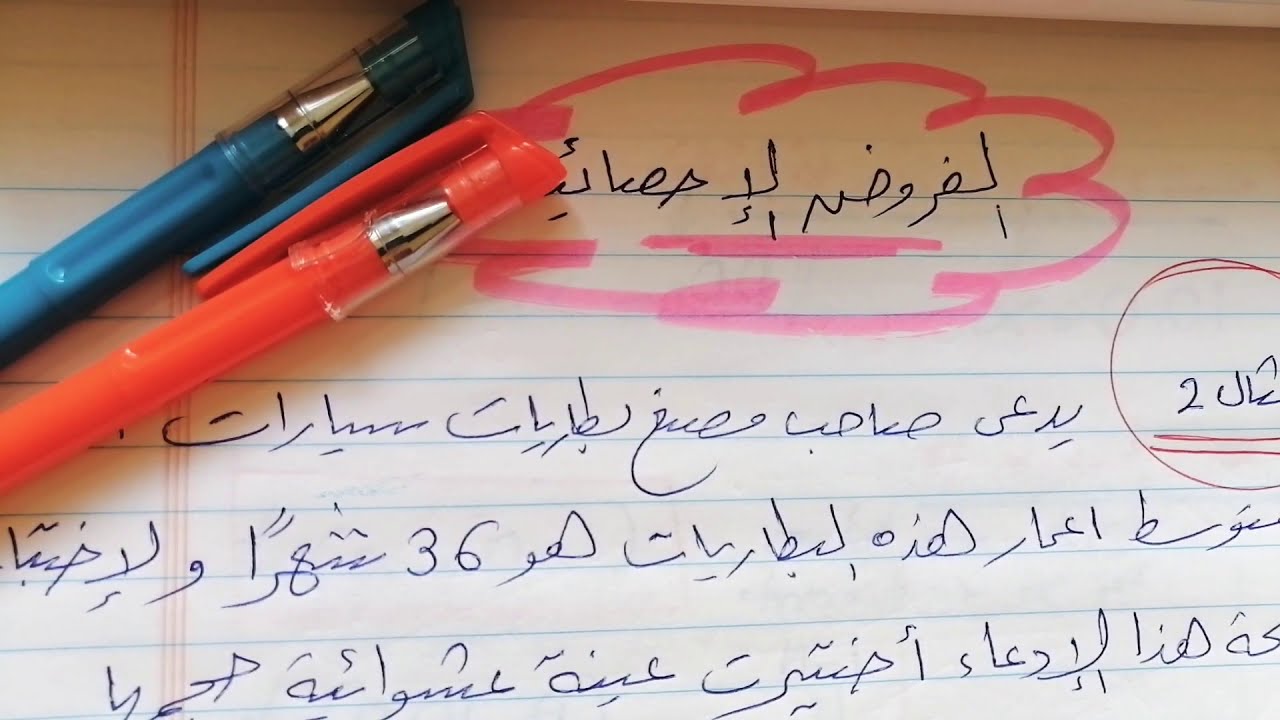 الفروض الإحصائية
مثال 2 يدعى صاحب مصنع بطاريات سيارات .
متوسط اعمار هذه البطاريات هو 36 شهرًا ولإختبا
حة هذا الإدعاء أختيرت عينة عشوائية حجمها